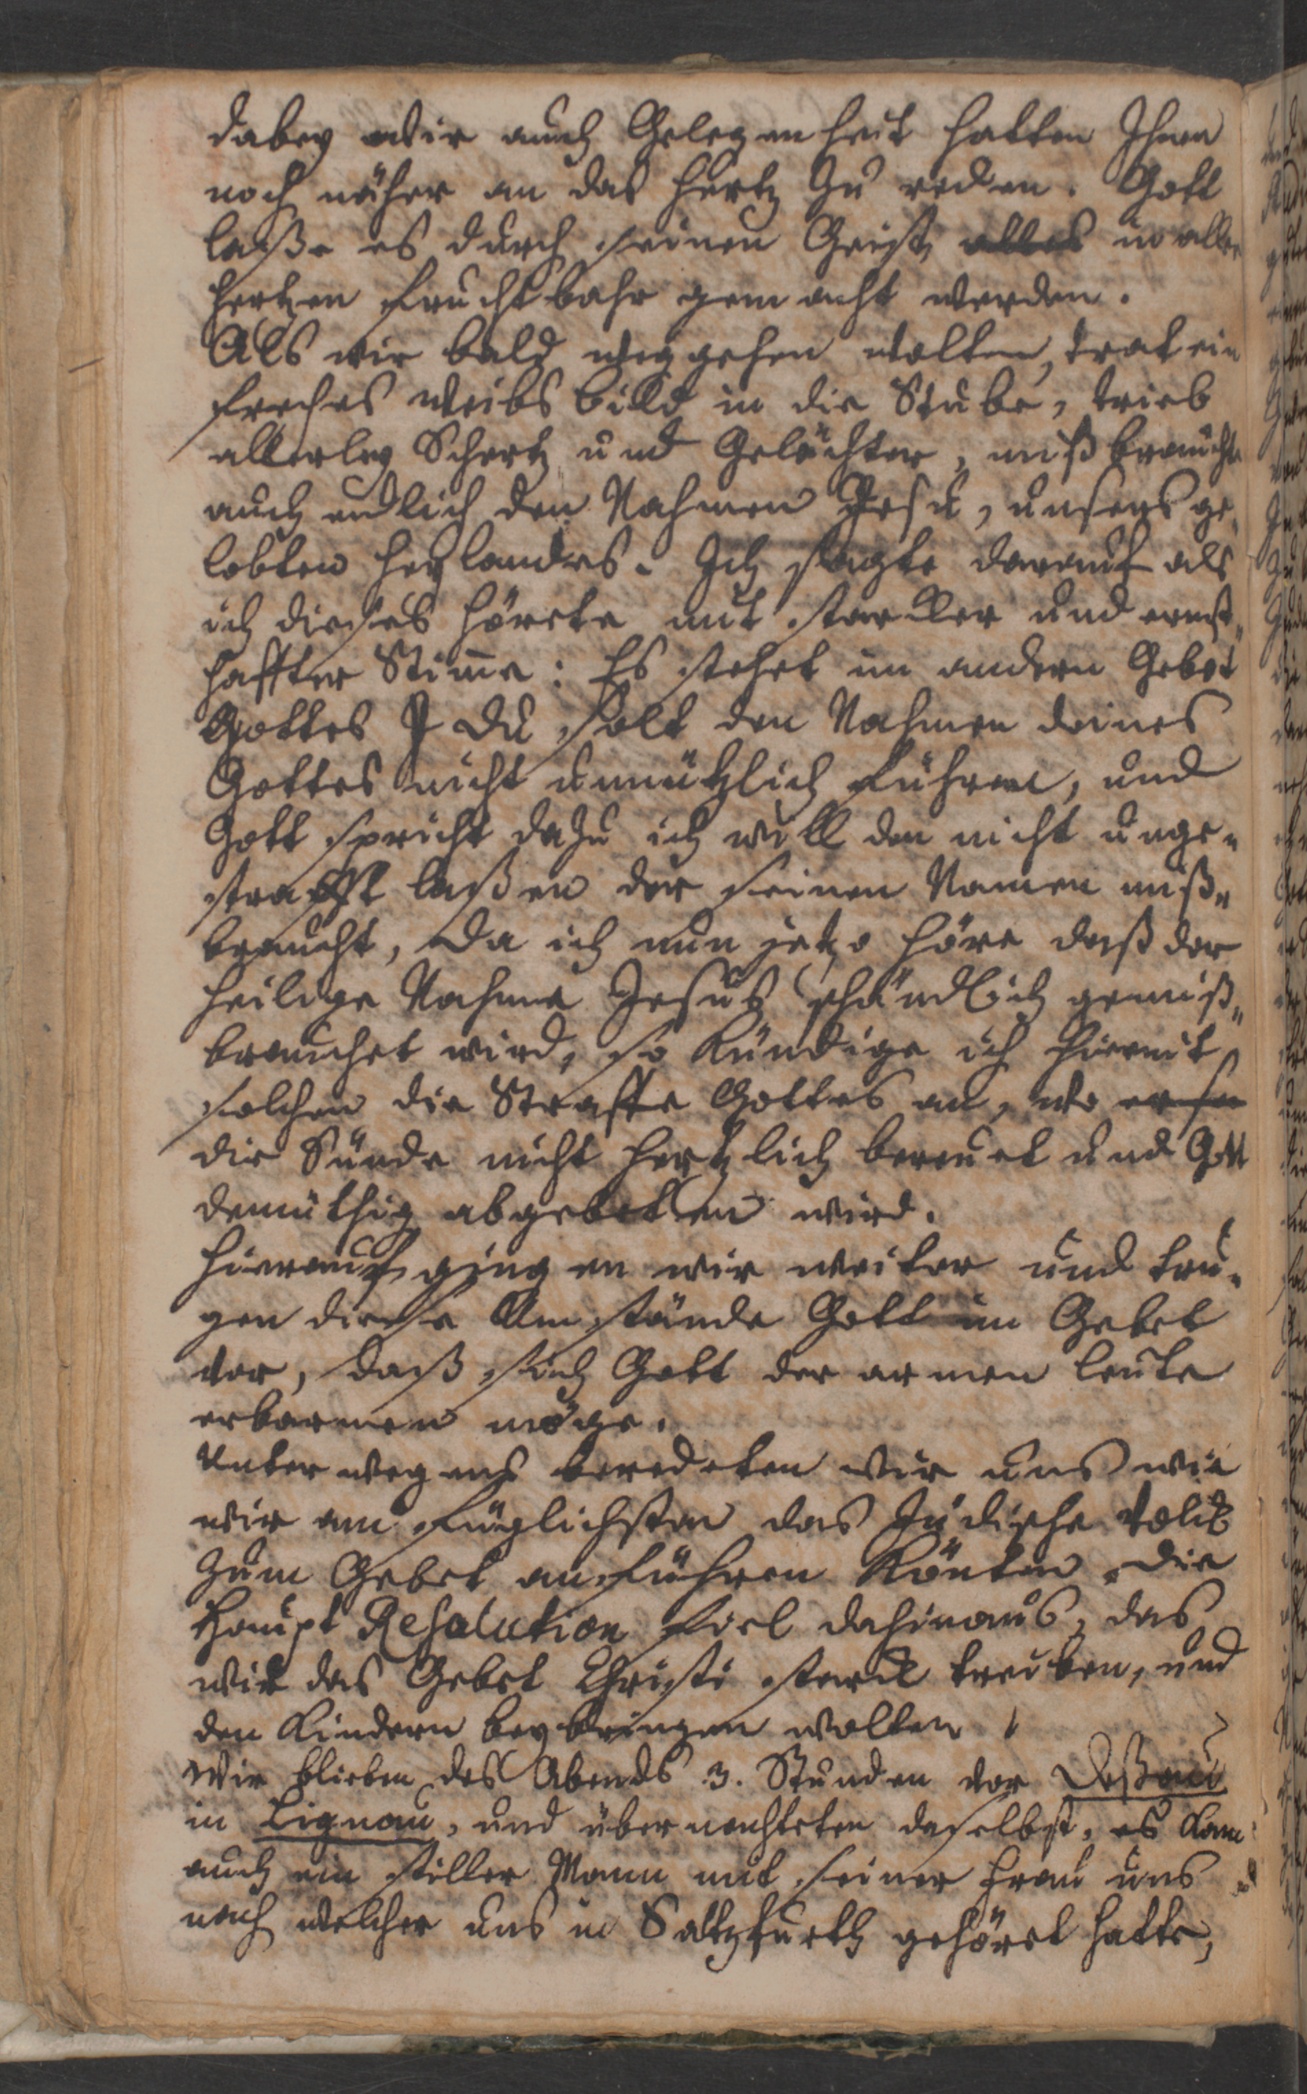 dabey wir auch Gelegenheit hatten Ihnen
noch näher an das Hertz zu reden. Gott
laße es durch seinen Geist alles in aller
Hertzen fruchtbahr gemacht werden.
Als wir bald weggehen wolten, trat ein
freches Weibsbild in die Stube, trieb
allerley Schertz und Gelächter, mißbrauchte
auch endlich den Nahmen Jesu, unsers ge-
lobten Heylandes. Ich sagte darauf als
ich dieses hörete mit starcker und ernst-
haffter Stim̄e: Es stehet im andern Gebot
Gottes Du solt den Nahmen deines
Gottes nicht unnützlich führen, und
Gott spricht dazu ich will den nicht unge-
strafft laßen der seinen Namen miß-
braucht, da ich nun jetzo höre daß der
heilige Nahme Jesus schändlich gemiß-
brauchet wird, so kündige ich hiermit
solchen die Straffe Gottes an, wo
die Sünde nicht hertzlich bereuet und Gott
demüthig abgebetten wird.
Hierauf gingen wir weiter und tru-
gen diese Umstände Gott im Gebet
vor, daß sich Gott der armen Leute
erbarmen möge.
Unterwegens beredeten wir uns wie
wir am füglichsten das Jüdische Volck
zum Gebet anführen könten. die
Haupt Resolution fiel dahinaus, das
wir das Gebet Christi starck treiben, und
den Kindern beybringen wolten
Wir blieben des Abends 3. Stunden vor Deßau
in Lignau, und übernachteten daselbst, es kam
auch ein stiller Mann mit seiner Frau uns
nach welcher uns in Saltzfurth gehöret hatte,